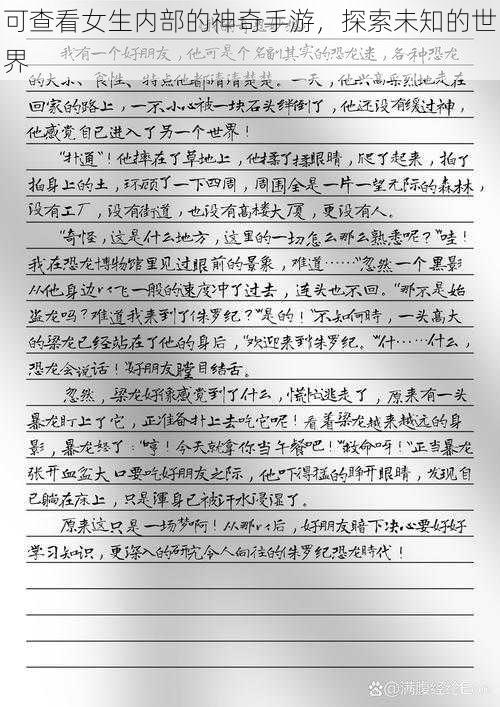 可查看女生内部的神奇手游，探索未知的世
界
我有一个好朋友，他可是个名副其实的恐龙迷，各种恐龙
的大小、食性、特点他都清清楚楚。一天，他兴高采烈地走在
回家的路上，一不小心被一块石头绊倒了，他还没有缓过神，
他感觉自己进入了另一个世界！
“扑通”！他摔在了草地上，他揉了揉眼睛，爬了起来，拍了
拍身上的土，环顾了一下四周，周围全是一片一望无际的森林，
没有工厂，没有街道，也没有高楼大厦，更没有人。
“奇怪，这是什么地方，这里的一切怎么那么熟悉呢？”哇！
我在恐龙博物馆里见过眼前的景象，难道……”忽然一个黑影
从他身边以飞一般的速度冲了过去，连头也不回。“那不是始
盗龙吗？难道我来到了侏罗纪？”“是的！”不知何時，一头高大
的梁龙已经站在了他的身后，“欢迎来到侏罗纪。”“什……什么，
恐龙会说话！”好朋友瞠目结舌。
忽然，梁龙好像感觉到了什么，慌忙逃走了，原来有一头
暴龙盯上了它，正准备扑上去吃它呢！看着梁龙越来越远的身
影，暴龙怒了：“哼！今天就拿你当午餐吧！”“救命呀！”正当暴龙
张开血盆大口要吃好朋友之际，他吓得猛的睁开眼睛，发现自
己躺在床上，只是渾身已被汗水浸湿了。
原来这只是一场梦啊！从那以后，好朋友暗下决心要好好
学习知识，更深入的研究令人向往的侏罗纪恐龙時代！